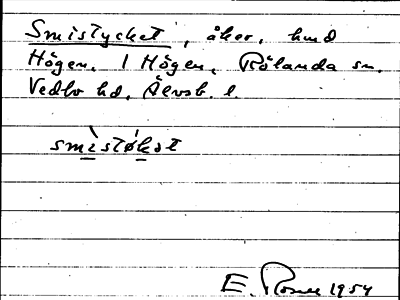 Smistycket, åker, hmd
Högen. 1 Högen, Rölanda sn.
Vedbo hd, Älvsb. l.
smìstø̀kət
E. 1954